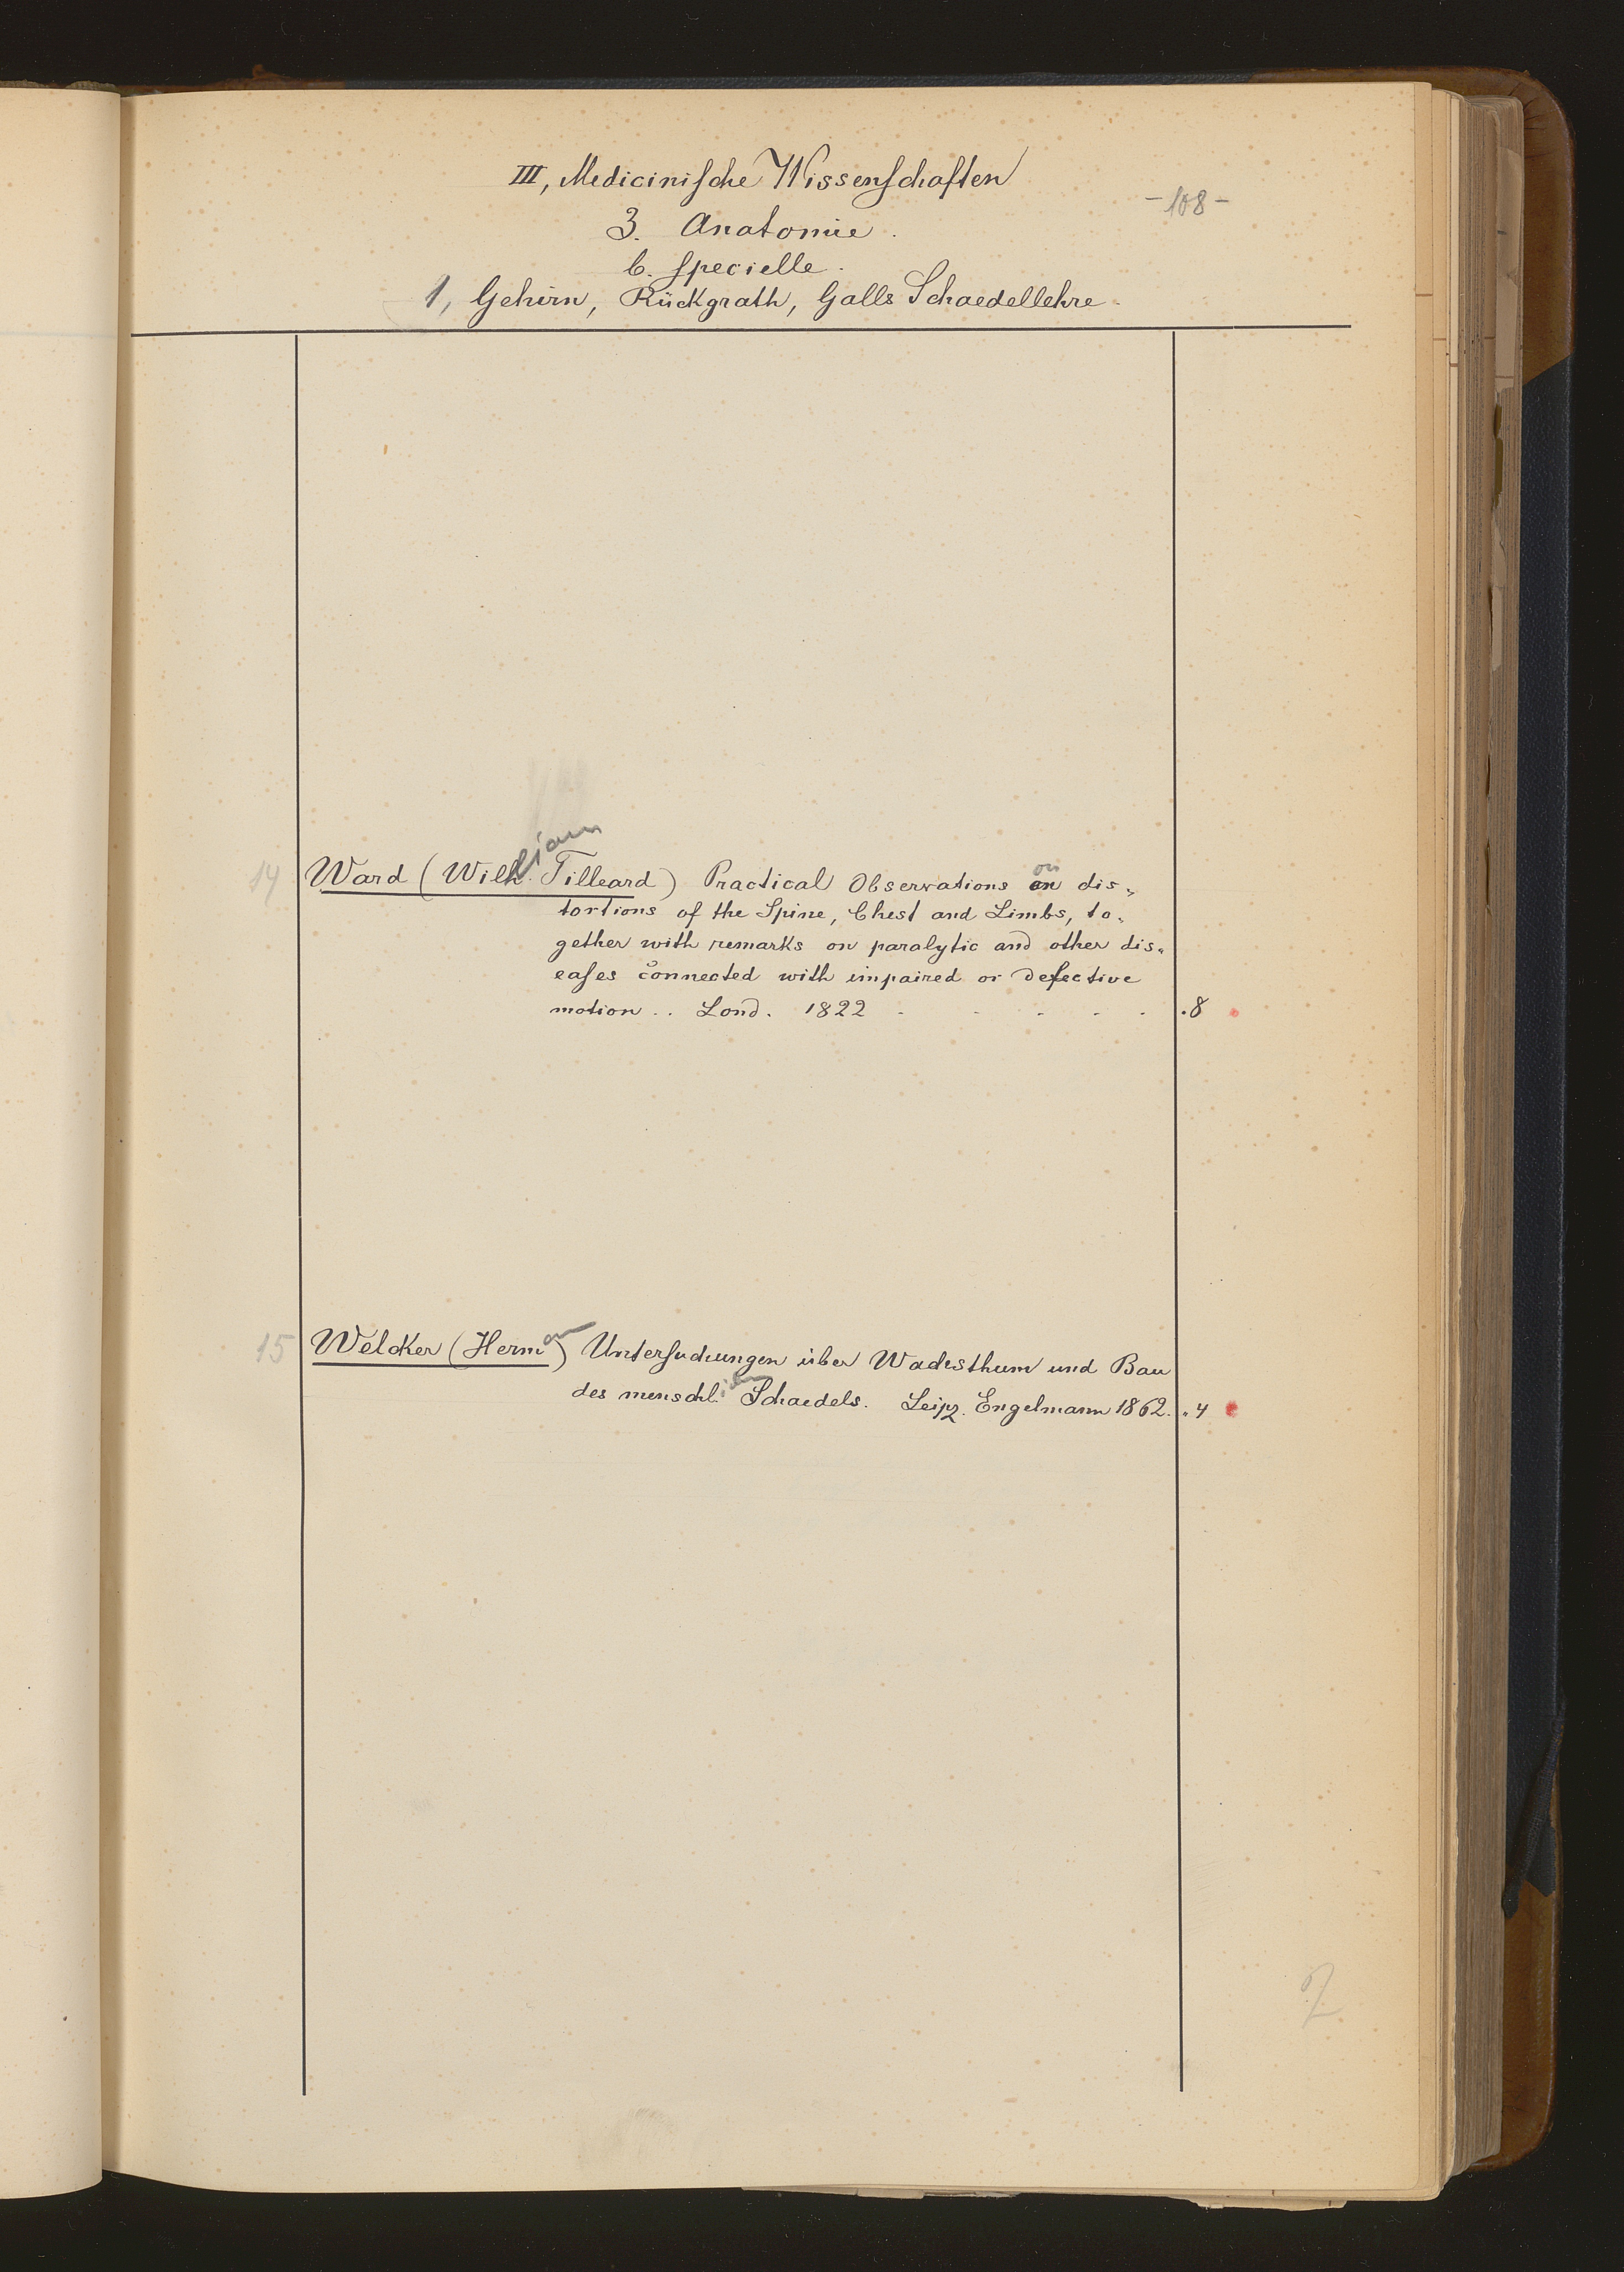 III, Medicinische Wissenschaften
-108-
3. Anatomie.
b. specielle.
1, Gehirn, Rückgrath, Galls Schaedellehre.
liam
on
14 Ward (Wilh. Tilleard) Practical Observations on dis„
tortions of the Spine, Chest and Limbs, to„
gether with remarks on paralytic and other dis„
eases connected with impaired or defective
motion .. Lond. 1822 - - - - - .8
15 Welcker (Hermann) Untersuchungen über Wachsthum und Bau
des menschl.ichen Schaedels. Leipz. Engelmann 1862. „4